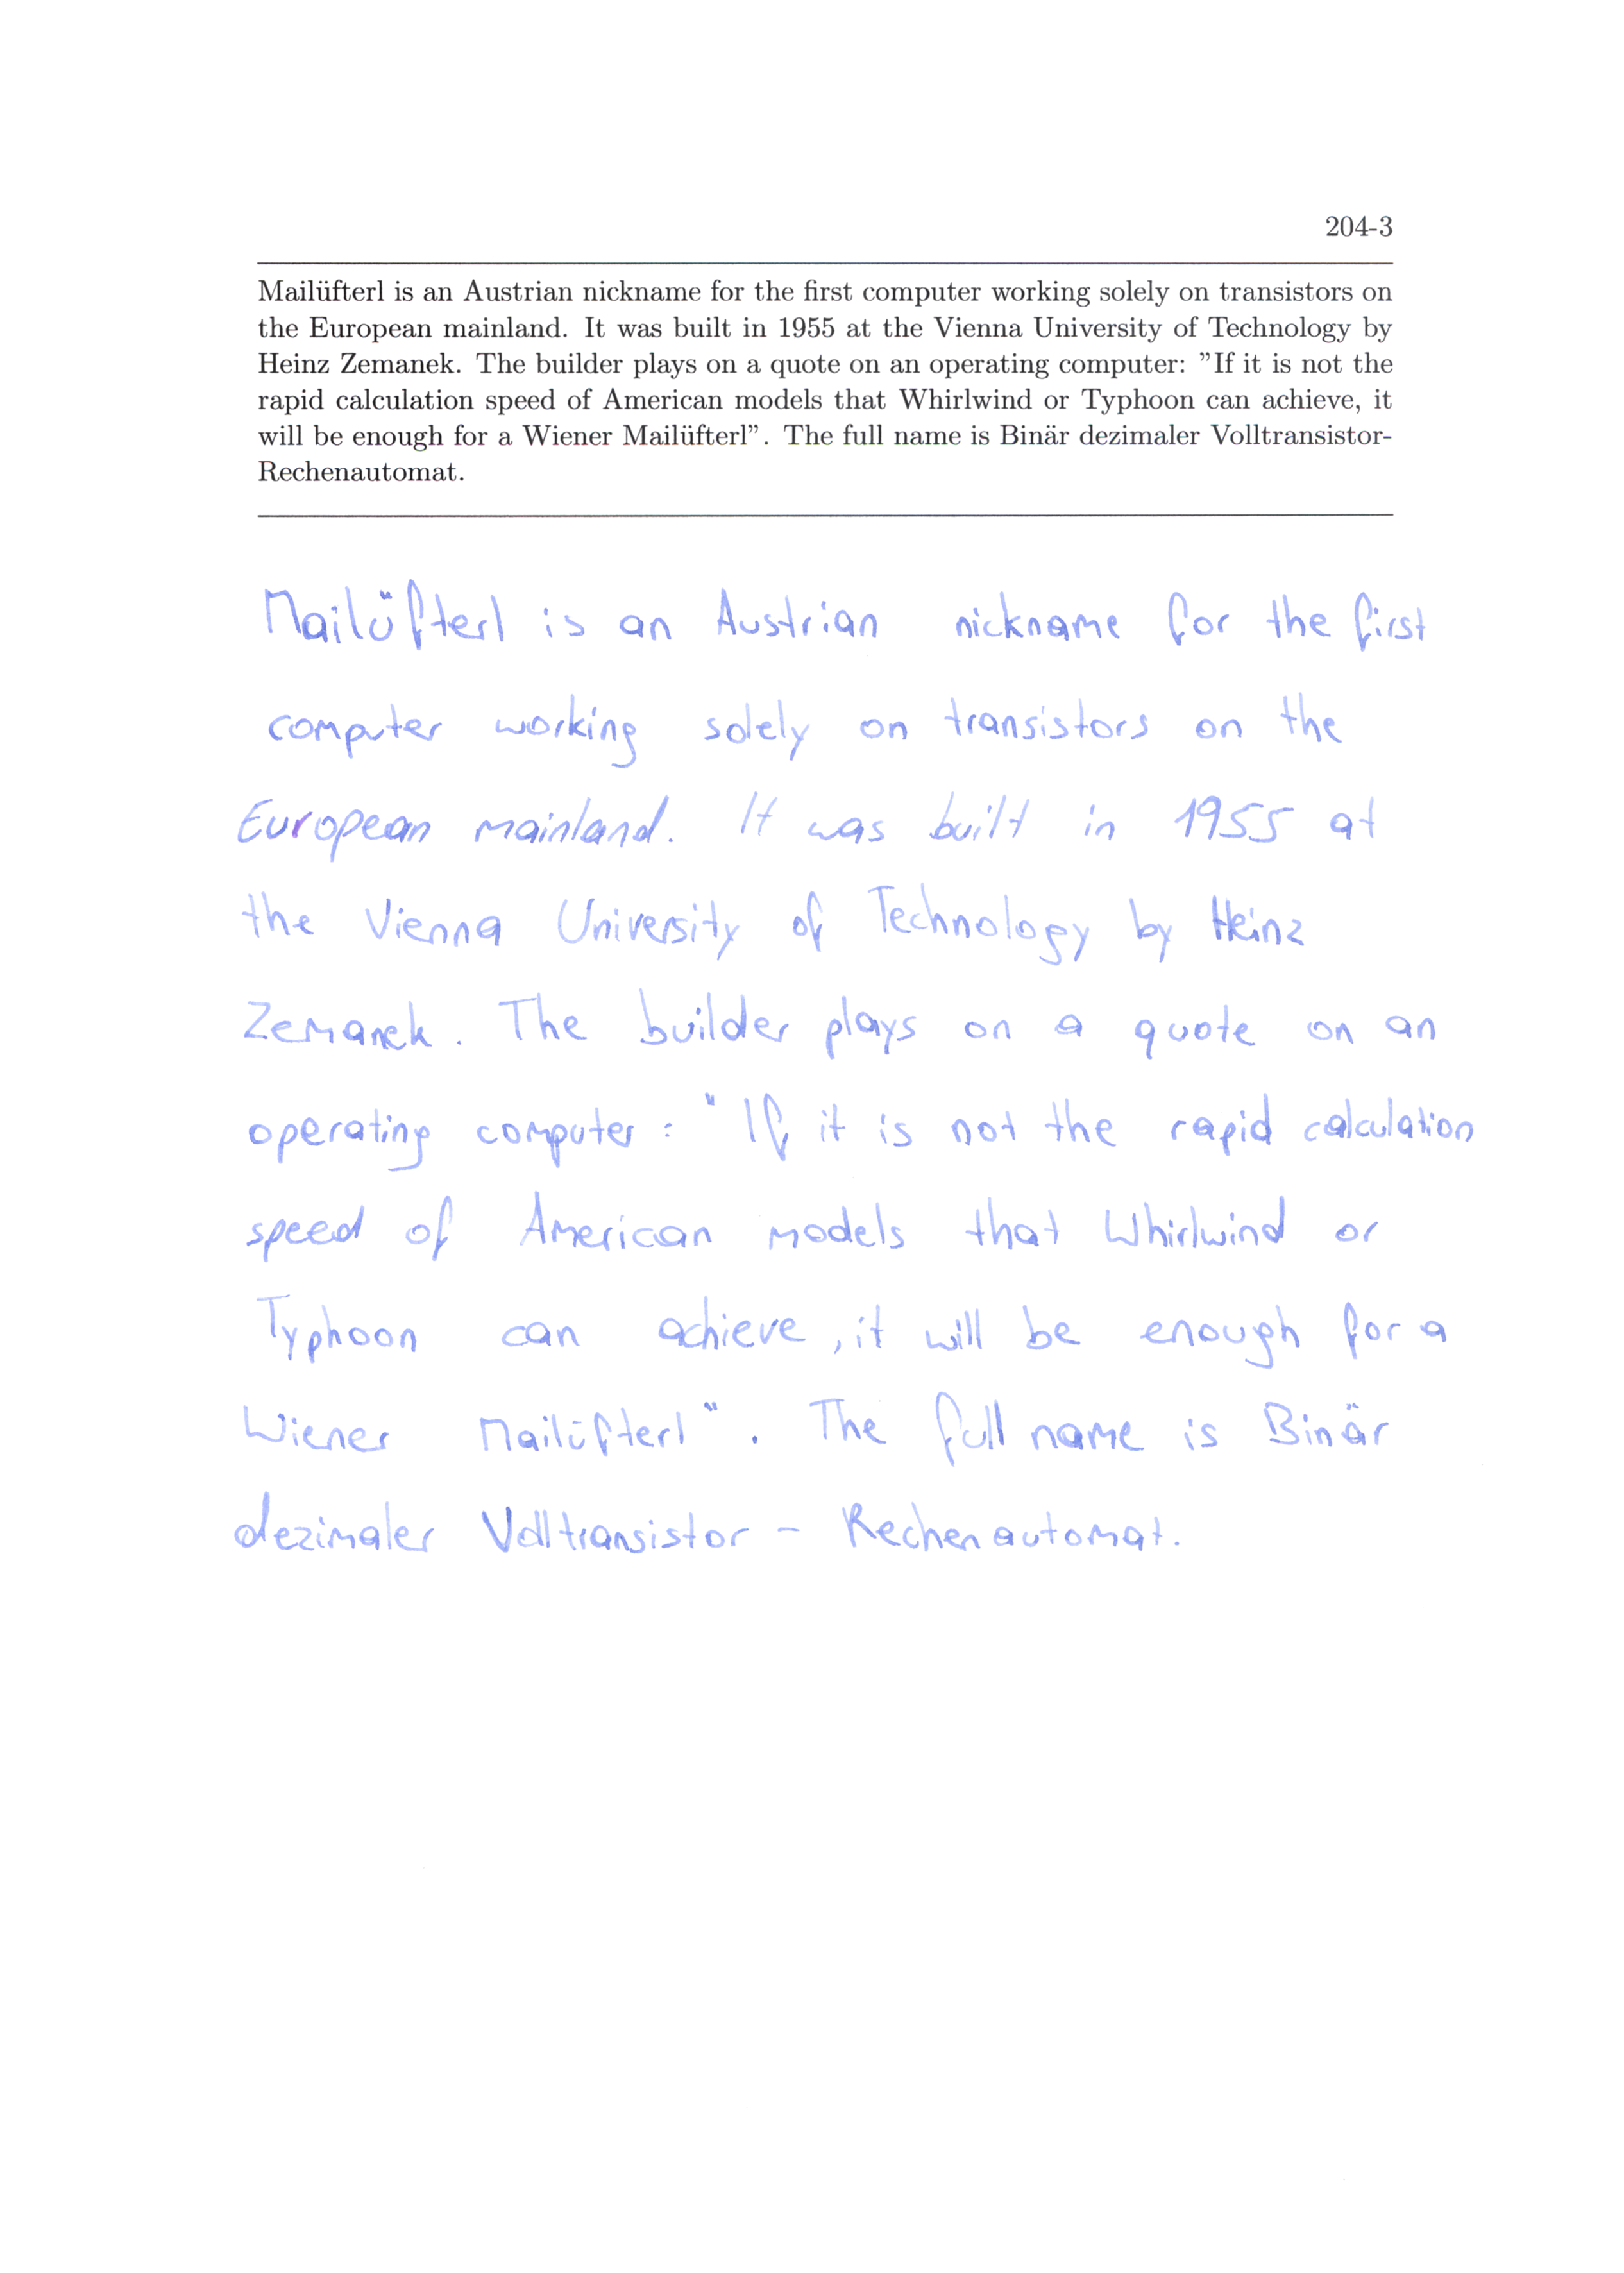 204-3
Mailüfterl is an Austrian nickname for the first computer working solely on transistors on
the European mainland. It was built in 1955 at the Vienna University of Technology by
Heinz Zemanek. The builder plays on a quote on an operating computer: ”If it is not the
rapid calculation speed of American models that Whirlwind or Typhoon can achieve, it
will be enough for a Wiener Mailüfterl”. The full name is Binär dezimaler Volltransistor-
Rechenautomat.
Mailüfterl is an Austrian nickname for the first
computer working solely on transistors on the
European mainland. It was built in 1955 at
the Vienna University of Technology by Heinz
Zemanek. The builder plays on a quote on an
operating computer: "If it is not the rapid calculation
speed of American models that Whirlwind or
Typhoon can achieve, it will be enough for a
Wiener Mailüfterl". The full name is Binär
dezimaler Volltransistor - Rechenautomat.